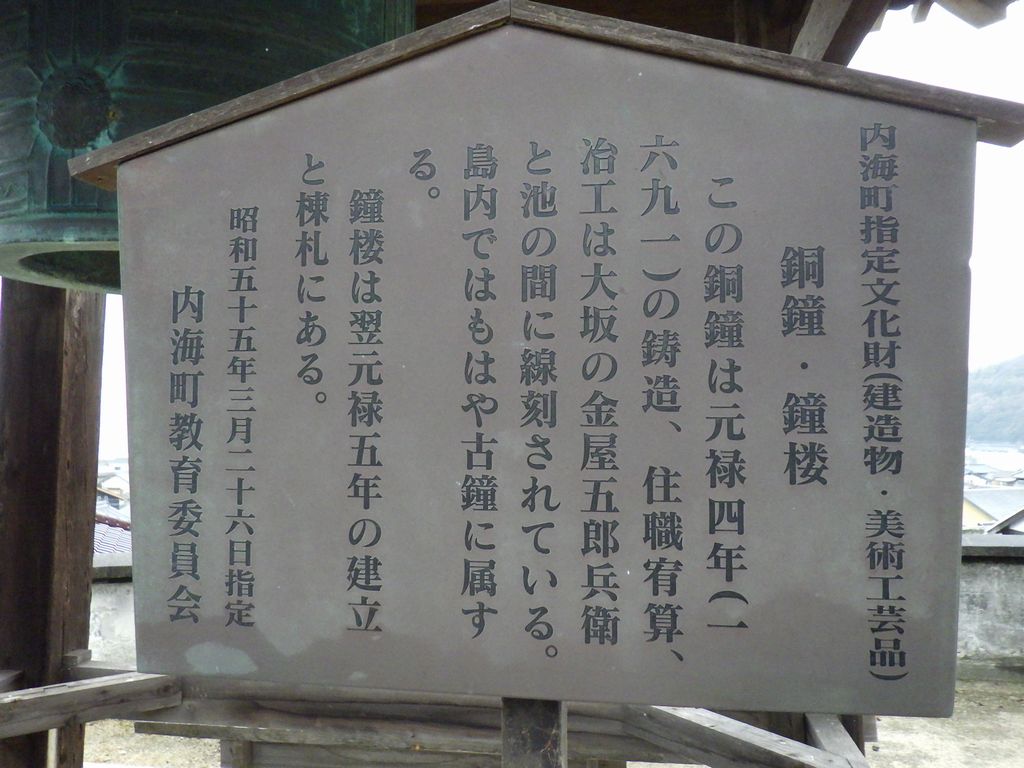 内海町指定文化財(建造物・美術工芸品)
銅鐘・鐘楼
この銅鐘は元禄四年(一
六九一)の鋳造、住職宥算、
冶工は大坂の金屋五郎兵衛
と池の間に線刻されている。
島内ではもはや古鐘に属す
る。
鐘楼は翌元禄五年の建立
と棟札にある。
昭和五十五年三月二十六日指定
内海町教育委員会